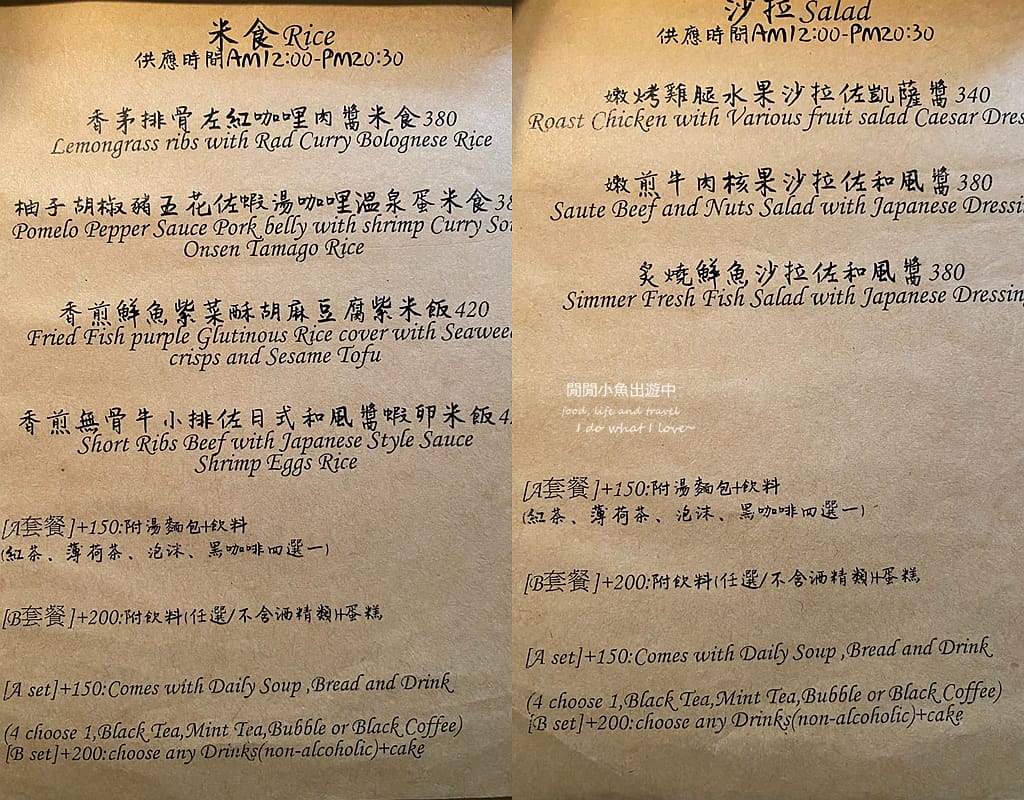 米食Rice
供應時間AM12:00-PM20:30
香茅排骨左紅咖哩肉醬米食380
Lemongrass ribs with Rad Curry Bolognese Rice
柚子胡椒豬五花佐蝦湯咖哩溫泉蛋米食
Pomelo Pepper Sauce Pork belly with shrimp Curry
Onsen Tamago Rice
香煎鮮魚紫菜酥胡麻豆腐紫米飯420
Fried Fish purple Glutinous Rice cover with Seawee
crisps and Sesame Tofu
香煎無骨牛小排佐日式和風醬蝦卵米飯
Short Ribs Beef with Japanese Style Sauce
Shrimp Eggs Rice
[A套餐]+150:附湯麵包+飲料
(紅茶、薄荷茶、泡沫、黑咖啡四選一)
[B套餐]+200:附飲料(任選/不含酒精類)+蛋糕
[A set]+150:Comes with Daily Soup ,Bread and Drink
(4 choose 1,Black Tea,Mint Tea,Bubble or Black Coffee)
[B set]+200:choose any Drinks(non-alcoholic)+cake
沙拉Salad
供應時間AM12:00-PM20:30
嫩烤雞腿水果沙拉佐凱薩醬340
Roast Chicken with Various fruit salad Caesar Dres
嫩煎牛肉核果沙拉佐和風醬380
Saute Beef and Nuts Salad with Japanese Dressi
炙燒鮮魚沙拉佐和風醬380
Simmer Fresh Fish Salad with Japanese Dressin
閒閒小魚出遊中
food, life and travel
I do what I love~
[A套餐]+150:附湯麵包+飲料
(紅茶、薄荷茶、泡沫、黑咖啡四選一)
[B套餐]+200:附飲料(任選/不含酒精類)+蛋糕
[A set]+150:Comes with Daily Soup ,Bread and Drink
(4 choose 1,Black Tea,Mint Tea,Bubble or Black Coffee)
[B set]+200:choose any Drinks(non-alcoholic)+cake